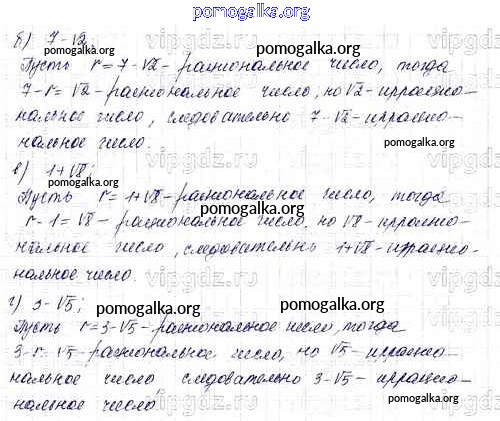 pomogalka.org
б) 7-√2;
pomogalka.org
Пусть r=7-√2 - рациональное число, тогда
7-r=√2 - рациональное число, но √2 - иррацио-
pomogalka.org
нальное число, следовательно 7-√2 - иррацио-
нальное число.
pomogalka.org
в) 1+√
pomogalka.org
Пусть r=1+√ - рациональное число, тогда
pomogalka.org
r-1=√ - рациональное число, но √ - иррацио-
нальное число, следовательно 1+√ - иррацио-
pomogalka.org
нальное число.
г) 3-√5;
pomogalka.org
Пусть r=3-√5 - рациональное число, тогда
pomogalka.org
3-r=√5 - рациональное число, но √5 - иррацио-
нальное число следовательно 3-√5 - иррацио-
pomogalka.org
нальное число
pomogalka.org
vipgdz.ru